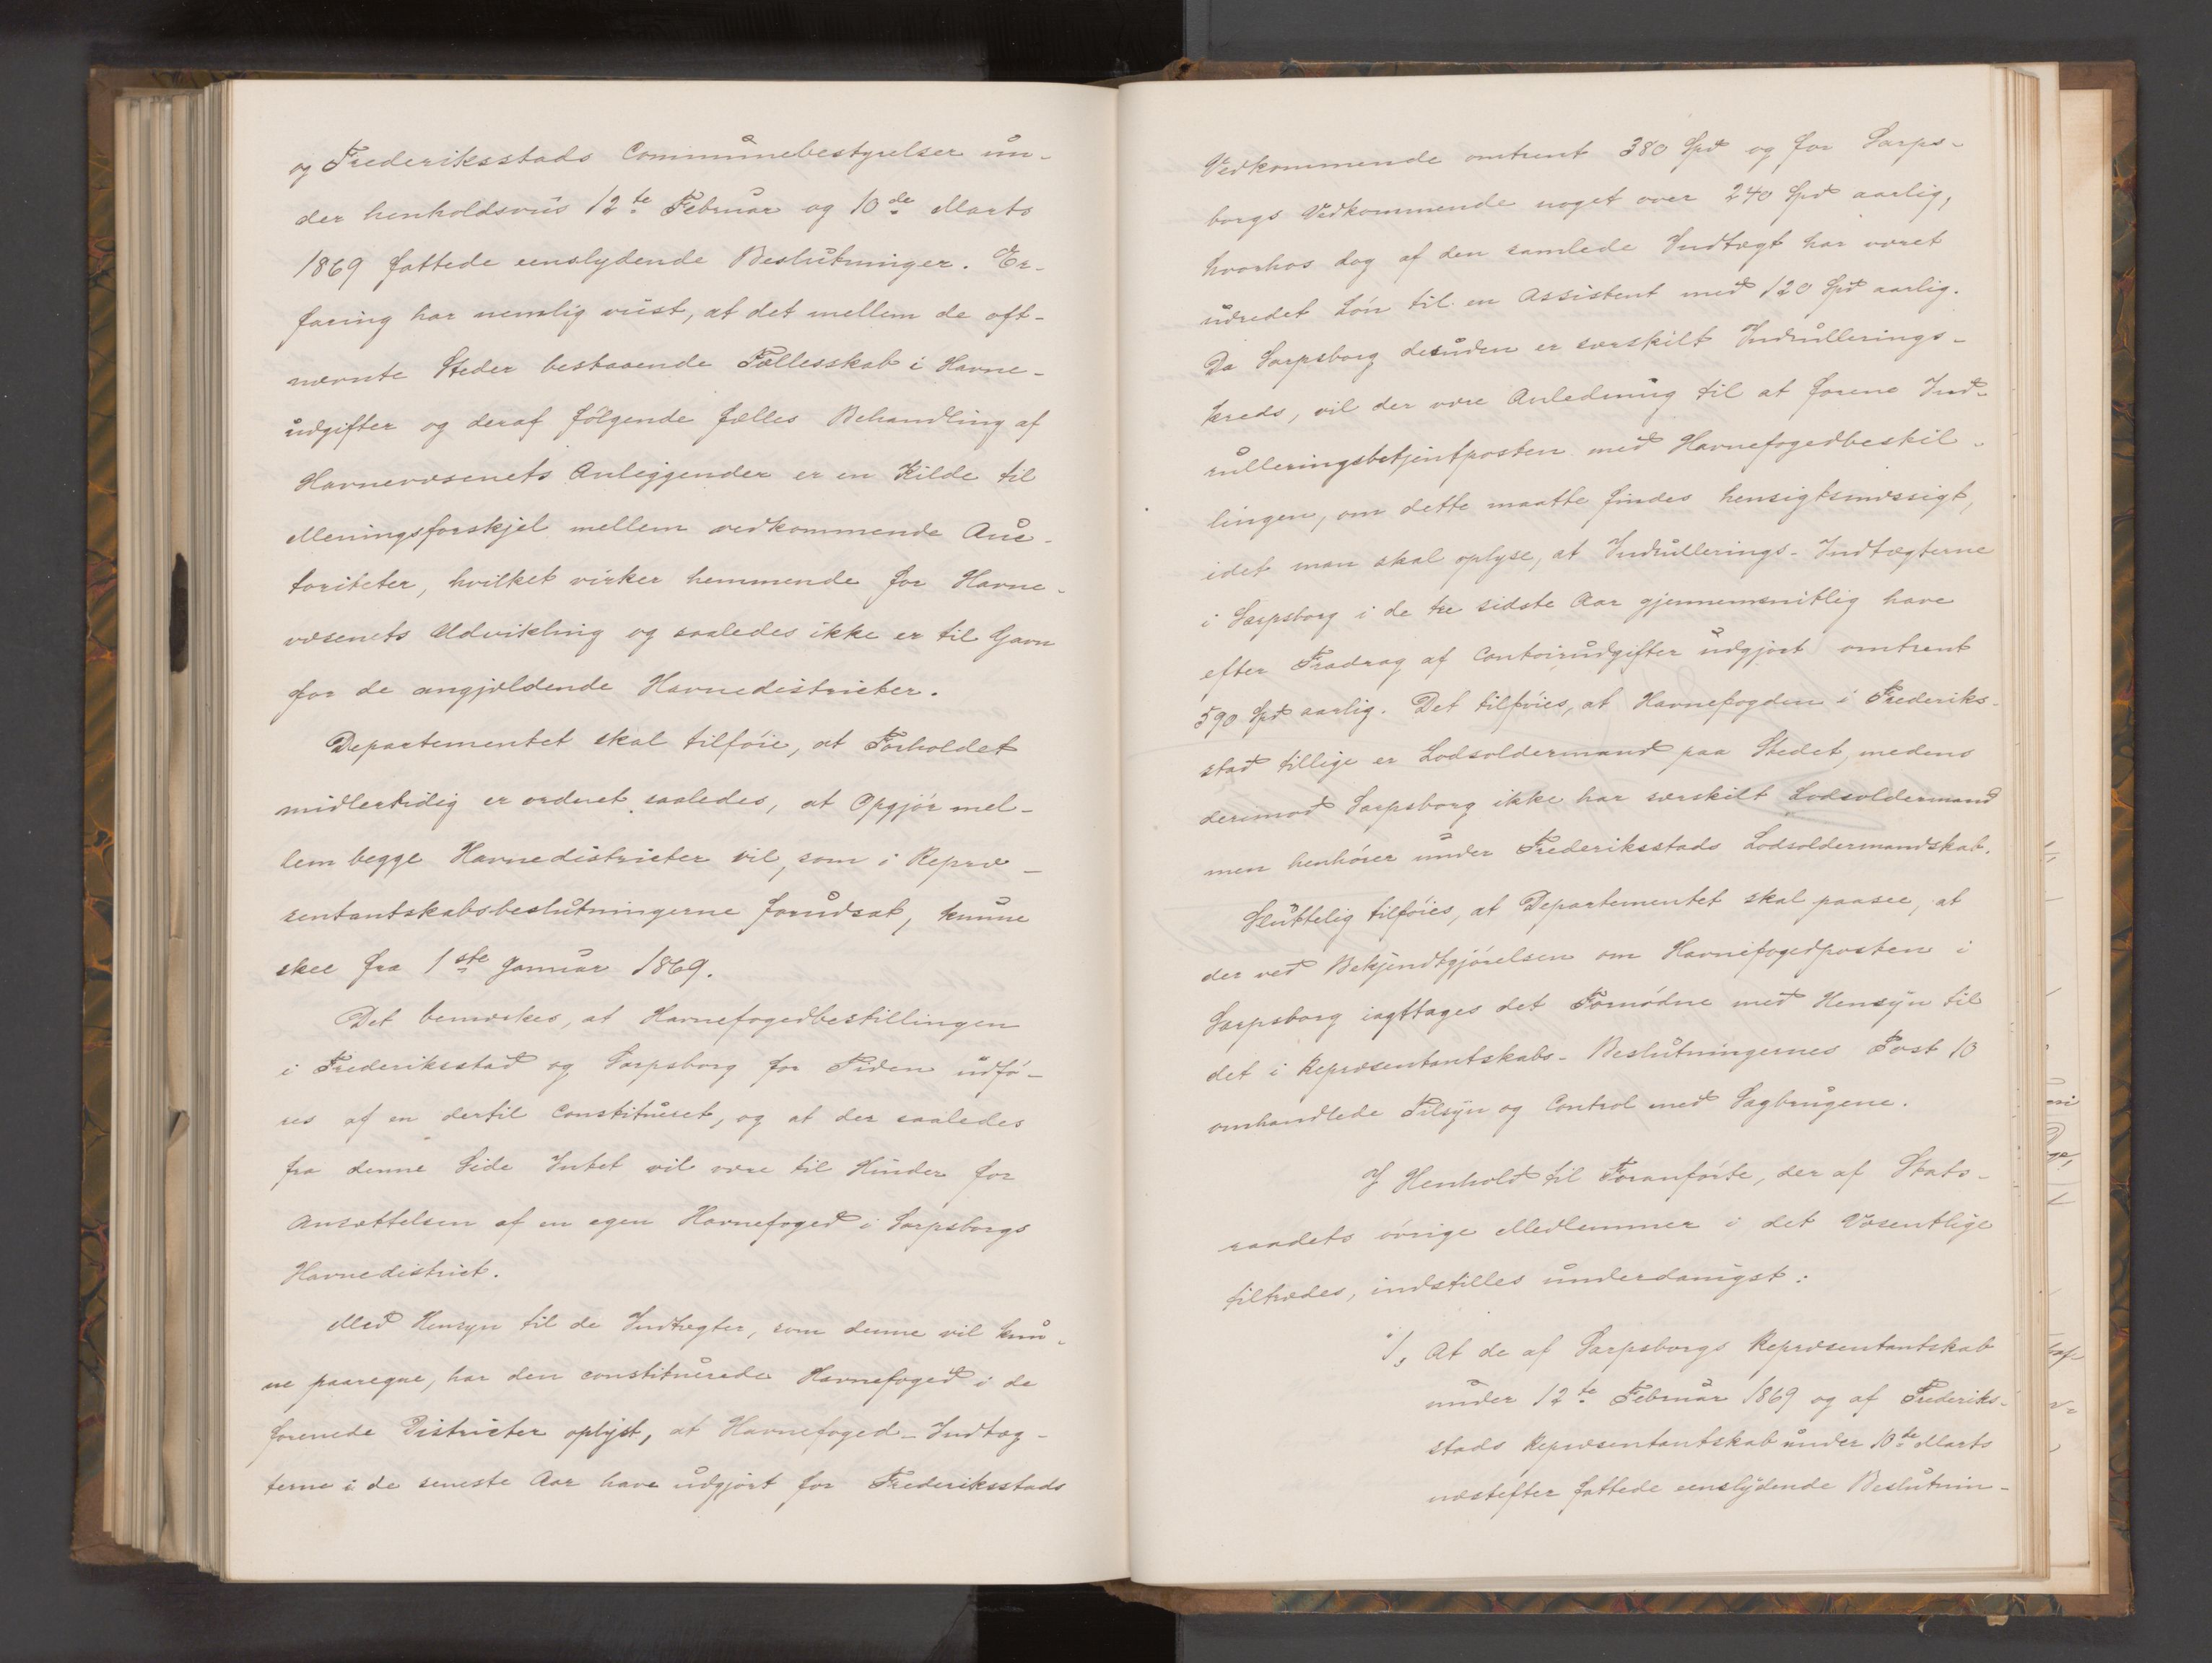 og Frederiksstads Communebestyrelser un-
der henholdsviis 12te Februar og 10de Marts
1869 fattede eenslydende Beslutninger. Er-
faring har nemlig viist, at det mellem de oft-
nævnte Steder bestaaende Fællesskab i Havne-
udgifter og deraf følgende fælles Behandling af
Havnevæsenets Anliggender er en Kilde til
Meningsforskjel mellem vedkommende Auc-
toriteter, hvilket virker hemmende for Havne-
væsenets Udvikling og saaledes ikke er til Gavn
for de angjældende Havnedistricter.
Departementet skal tilføie, at Forholdet
midlertidig er ordnet saaledes, at Opgjør mel-
lem begge Havnedistricter vil, som i Repræ-
sentantskabsbeslutningerne forudsat, kunne
skee fra 1ste Januar 1869.
Det bemærkes, at Havnefogedbestillingen
i Frederiksstad og Sarpsborg for Tiden udfø-
res af en dertil Constitueret, og at der saaledes
fra denne Side Intet vil være til Hinder for
Ansættelsen af en egen Havnefoged i Sarpsborgs
Havnedistrict.
Med Hensyn til de Indtægter, som denne vil kun-
ne paaregne, har den constituerede Havnefoged i de
forenede Districter oplyst, at Havnefoged-Indtæg-
terne i de seneste Aar have udgjort for Frederiksstads
Vedkommende omtrent 380 Spd og for Sarps-
borgs Vedkommende noget over 240 Spd aarlig,
hvorhos dog af den samlede Indtægt har været
udredet Løn til en Assistent med 120 Spd aarlig.
Da Sarpsborg desuden er særskilt Indrullerings-
kreds, vil der være Anledning til at forene Ind-
rulleringsbetjentposten med Havnefogedbestil-
lingen, om dette maatte findes hensigtsmæssigt,
idet man skal oplyse, at Indrullerings-Indtægterne
i Sarpsborg i de tre sidste Aar gjennemsnitlig have
efter Fradrag af Contoirudgifter udgjort omtrent
590 Spd aarlig. Det tilføies, at Havnefogden i Frederiks-
stad tillige er Lodsoldermand paa Stedet, medens
derimod Sarpsborg ikke har særskilt Lodsoldermand
men henhører under Frederiksstads Lodsoldermandskab.
Sluttelig tilføies, at Departementet skal paasee, at
der ved Bekjendtgjørelsen om Havnefogedposten i
Sarpsborg iagttages det Fornødne med Hensyn til
det i Repræsentantskabs-Beslutningernes Post 10
omhandlede Tilsyn og Control med Sagbrugene.
I Henhold til Foranførte, der af Stats-
raadets øvrige Medlemmer i det Væsentlige
tiltrædes, indstilles underdanigst:
1, At de af Sarpsborgs Repræsentantskab
under 12te Februar 1869 og af Frederiks-
stads Repræsentantskab under 10de Marts
næstefter fattede eenslydende Beslutnin-